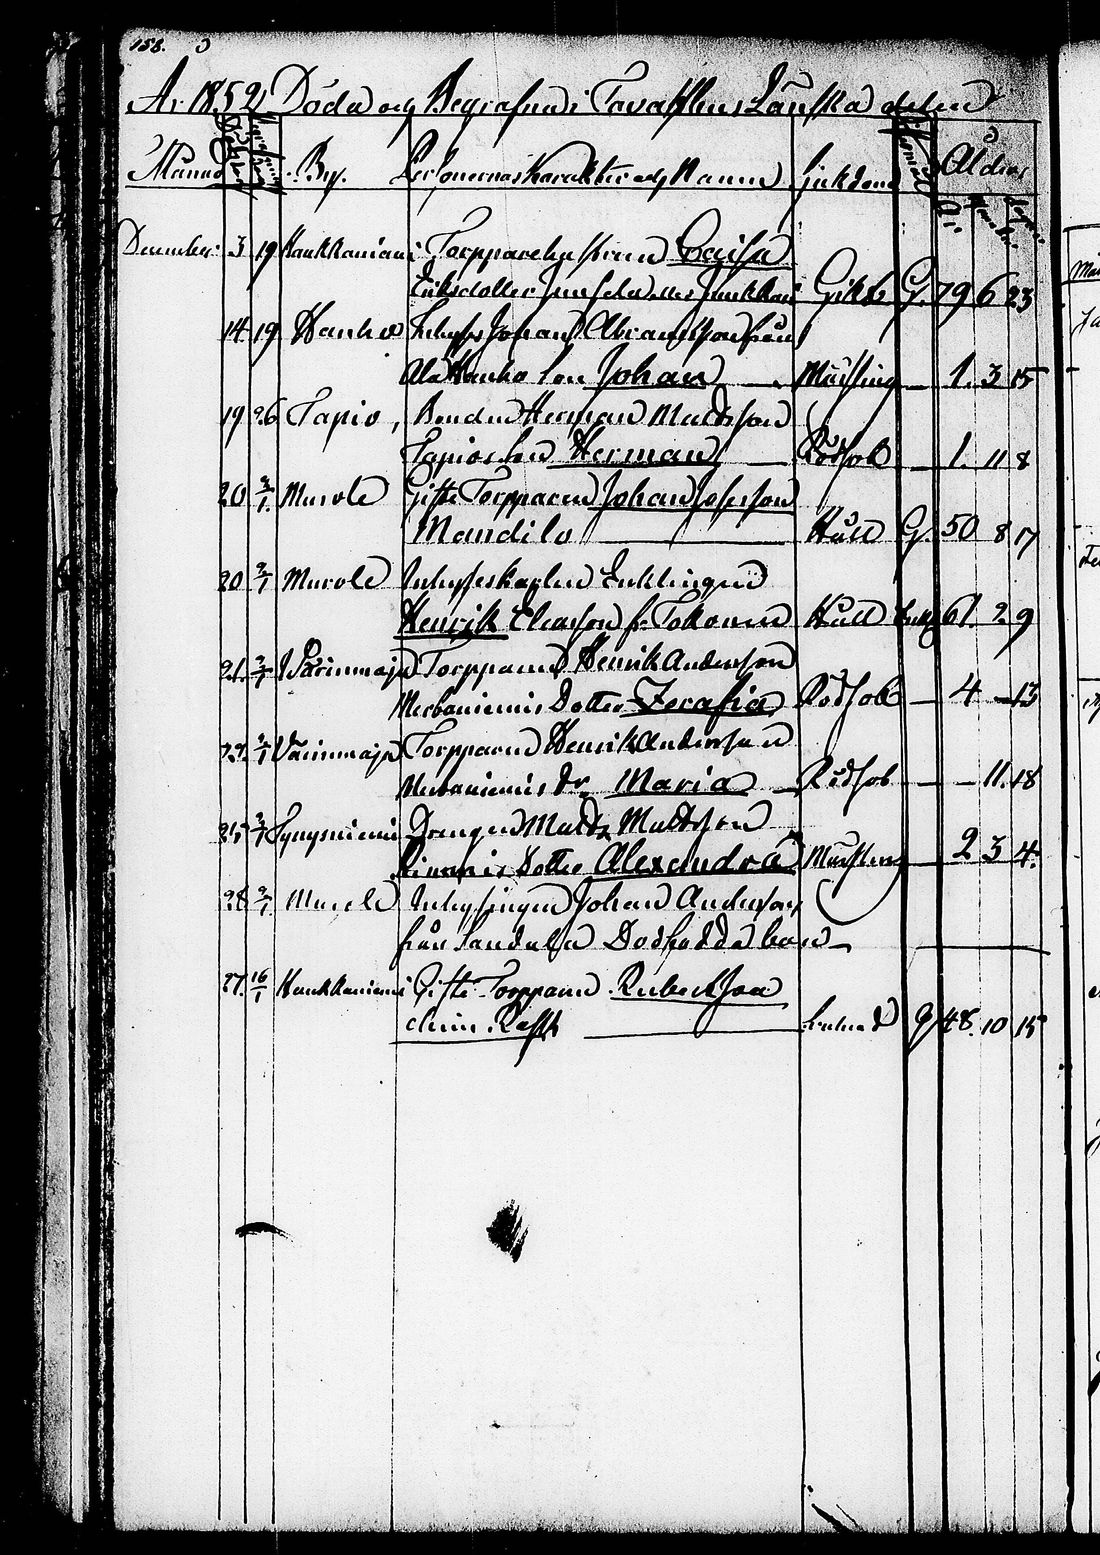 158.
År 1852 Döda och Begrafne i Tavastlens Länska delen
Månad By. Personernas Karakter och Namn Sjukdom Ålder
År
December 3 19 Kankkaniemi Torpparehustrun Caisa
Eriksdotter Gikt G. 79 6 23
14 19 Hanko Inhyse Johan Abramsson från
Ala Hanko son Johan Mässling 1. 3 15
19 26 Tapio, Bonden Herman Mattsson
Tapios son Herman Rödsot 1. 11 8
20 2/1 Murole Gifte Torpparen Johan Josefsson
Mandilo Håll G. 50 8 17
20 2/1 Murole Inhyseskarlen Enklingen
Henrik Eliasson fr. Håll Enkl. 61. 2. 9
21. 2/1 Väärinmaja Torpparen Henrik Andersson
Dotter Serafia Rödsot 4 13
2/1 Väärinmaja Torpparen Henrik Andersson
Dr. Maria Rödsot 11. 18
25 2/1 Drengen Matts Mattsson
Dotter Alexandra Mässling 2 3 4.
28 2/1 Murole Inhysingen Johan Anderson
från Sandula Dödfödda barn
27. 16/1 Kankkaniemi Gifte Torpparen
G 48. 10 15